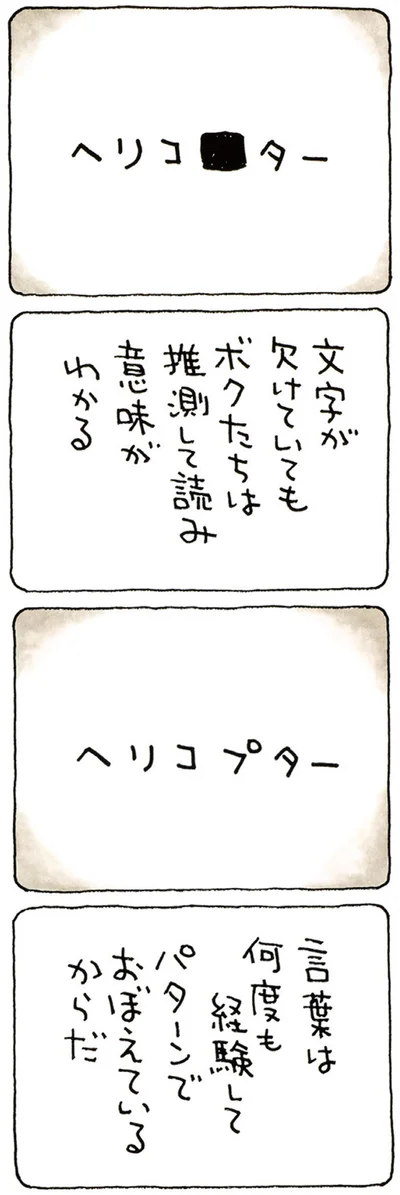 ヘリコ■ター
文字が
欠けていても
ボクたちは
推測して読み
意味が
わかる
ヘリコプター
言葉は
何度も
経験して
パターンで
おぼえている
からだ